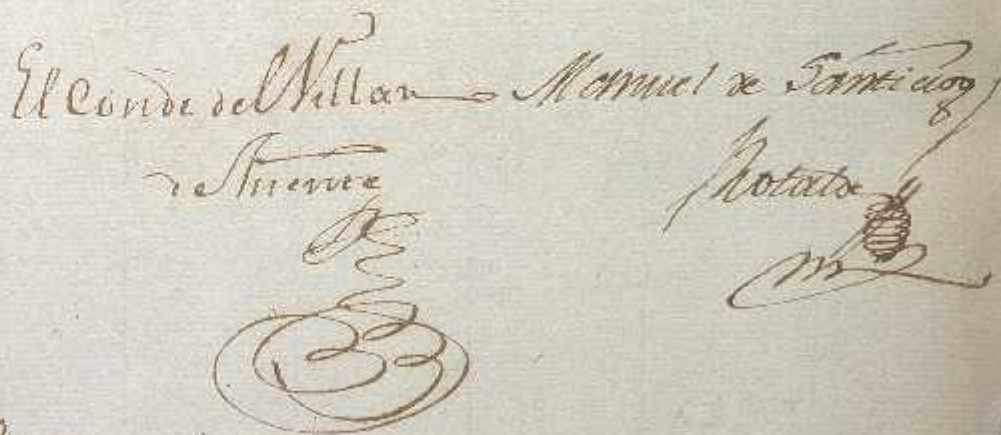 El Conde del Villar
de Fuente
Manuel de Santiago
Rotalde